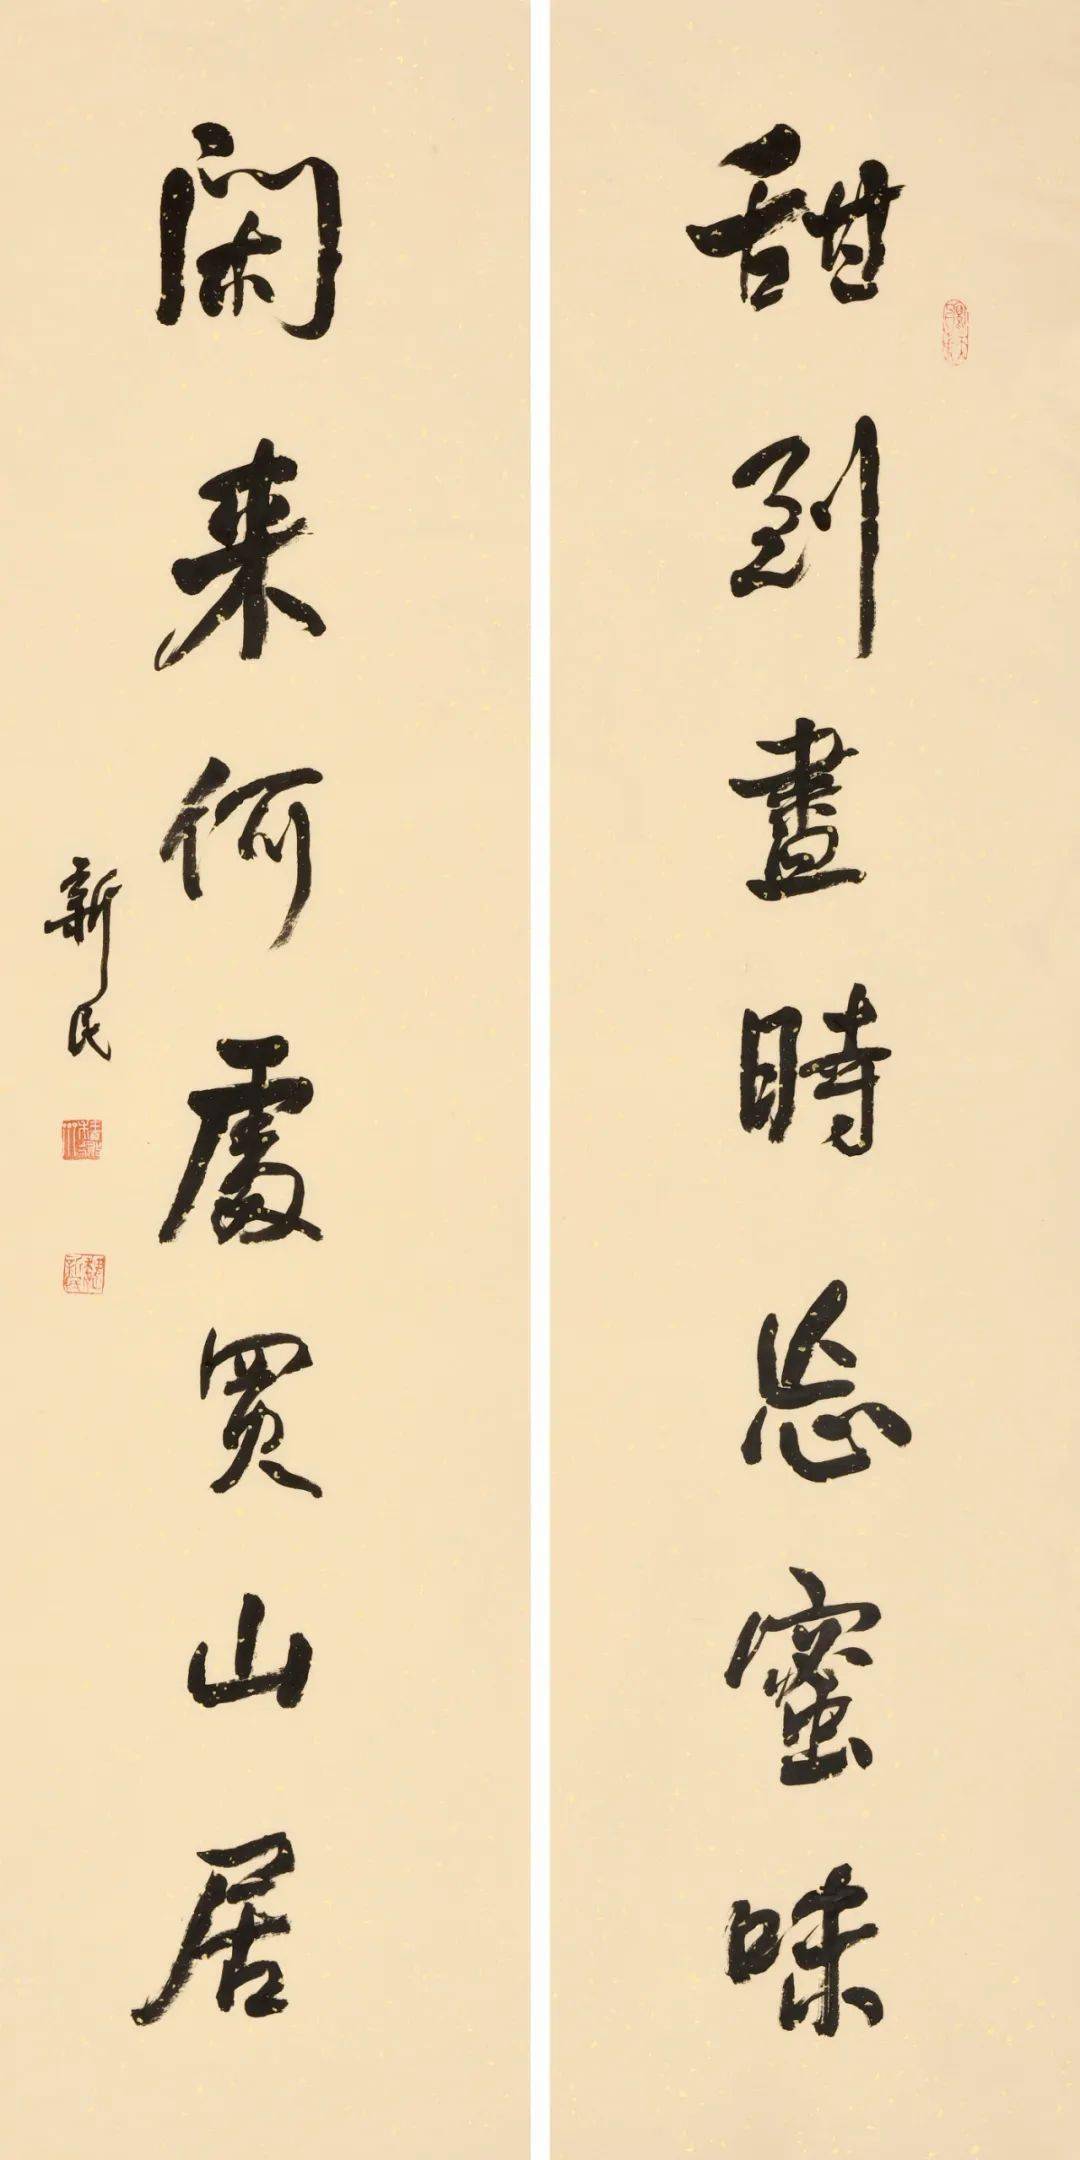 甜到盡時忘蜜味
閑來何處買山居
新民